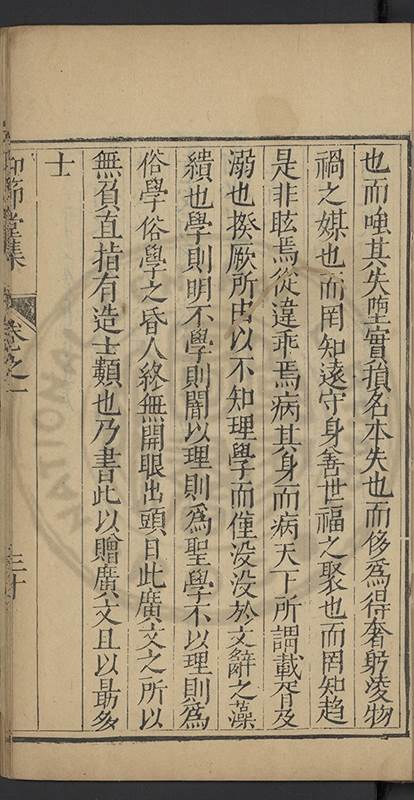 也而嗤其失墮實損名本失也而侈爲得奢躬凌物
禍之媒也而罔知遠守身善世福之聚也而罔知趨
是非眩焉從違乖焉病其身而病天下所謂載胥及
溺也揆厥所由以不知理學而僅没没於文辭之藻
繢也學則明不學則闇以理則爲聖學不以理則爲
俗學俗學之昏人終無開眼出頭日此廣文之所以
無負直指有造士類也乃書此以贈廣文且以勗多
士
仰節堂集
卷之一
三十